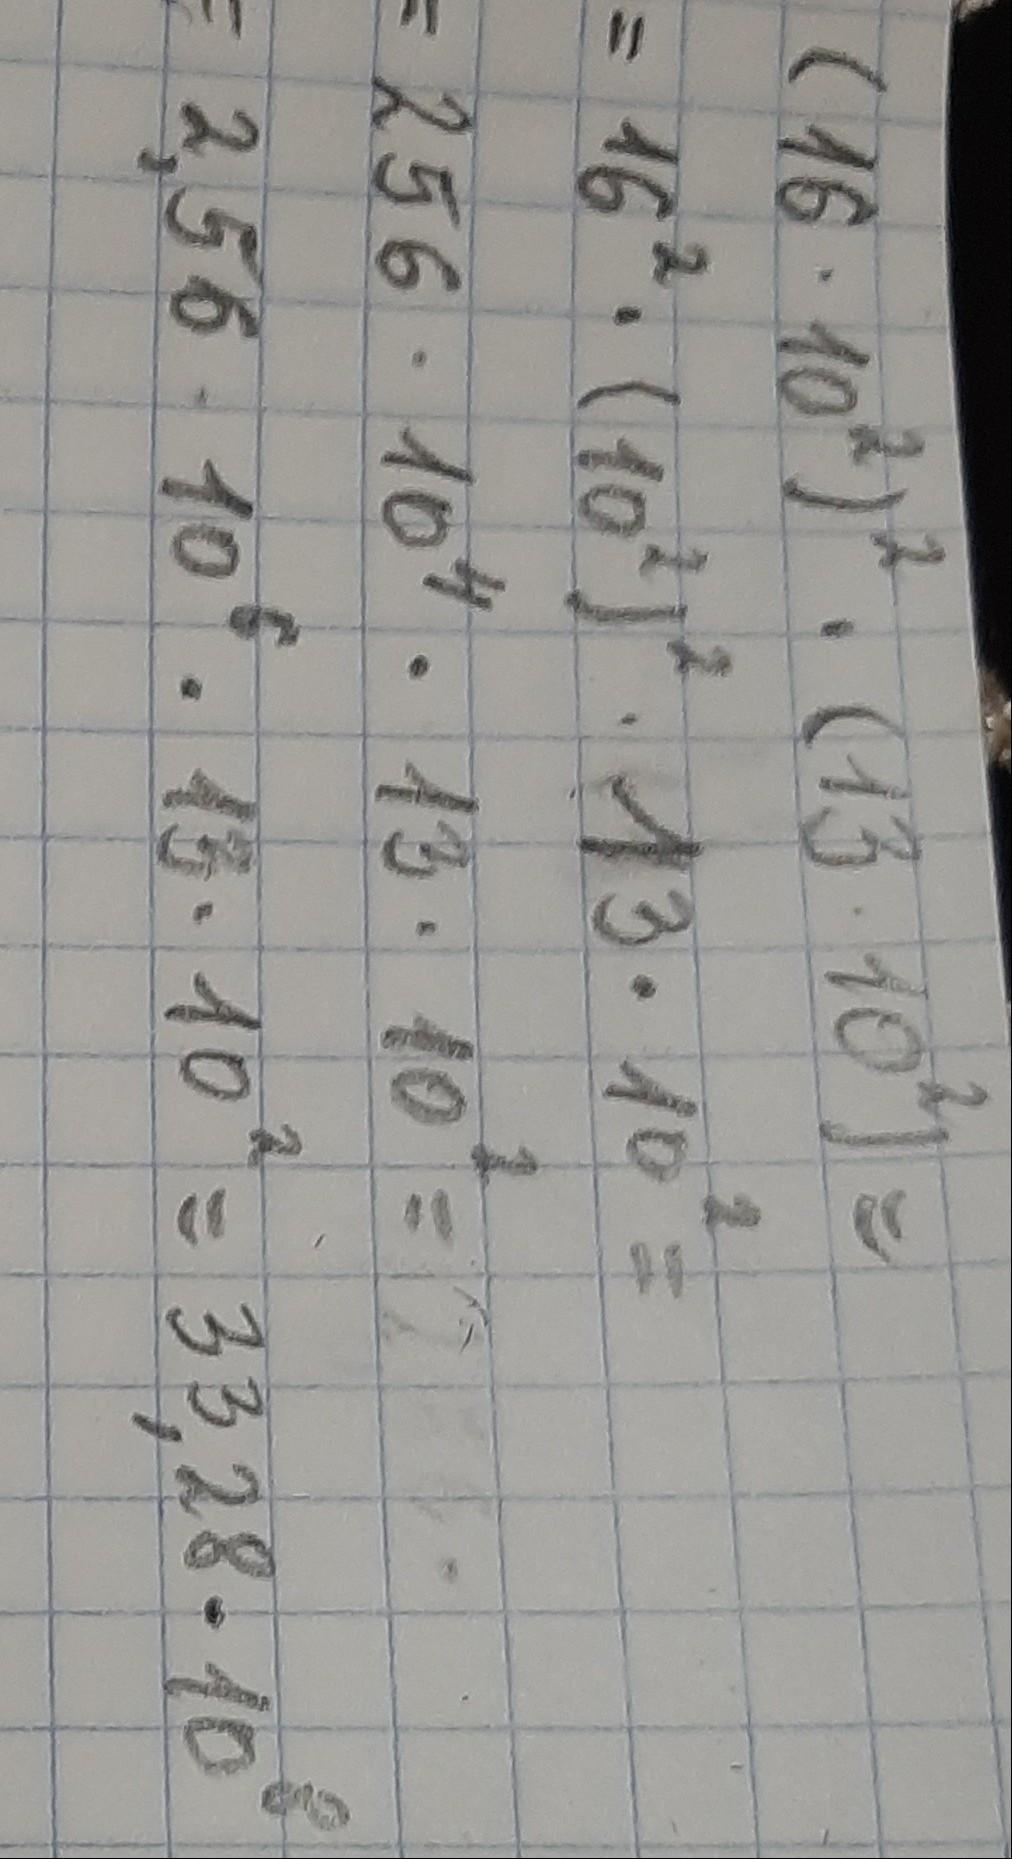 (16 · 10²)² · (13 · 10²) =
= 16² · (10²)² · 13 · 10² =
= 256 · 10⁴ · 13 · 10² =
= 2,56 · 10⁶ · 13 · 10² = 33,28 · 10⁸